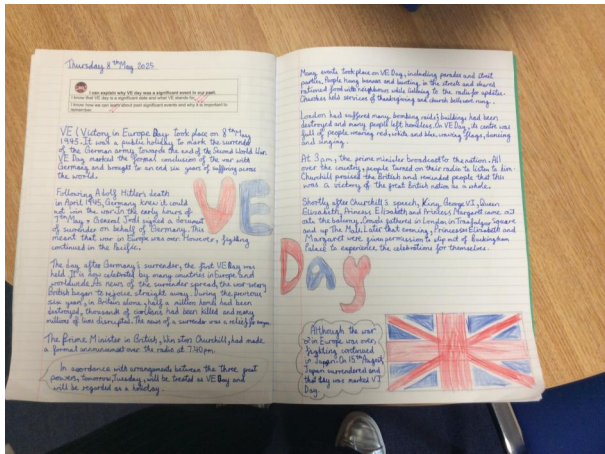 Thursday 8th May 2025
I can explain why VE day was a significant event in our past.
I know that VE day is a significant date and what VE stands for.
I know how we can learn about past significant events and why it is important to
remember.
VE (Victory in Europe Day took place on 8th May
1945. It was a public holiday to mark the surrender
of the German army towards the end of the Second World War.
VE Day marked the formal conclusion of the war with
Germany and brought to an end six years of suffering across
the world.
Following Adolf Hitler's death
in April 1945, Germany knew it could
not win the war. In the early hours of
7th May, General Jodl signed a document
of surrender on behalf of Germany. This
meant that war in Europe was over. However, fighting
continued in the Pacific.
The day after Germany's surrender, the first VE Day was
held. It is now celebrated by many countries in Europe and
worldwide. As news of the surrender spread, the war-weary
British began to rejoice straight away. During the previous
six years, in Britain alone, half a million homes had been
destroyed, thousands of civilians had been killed and many
millions of lives disrupted. The news of a surrender was a relief
The Prime Minister in British, Winston Churchill, had made
a formal announcement over the radio at 7.40pm.
In accordance with arrangements between the three great
powers, tomorrow, Tuesday, will be treated as VE Day and
will be regarded as a holiday.
VE
Day
Many events took place on VE Day, including parades and street
parties. People hung banners and bunting in the streets and shared
rationed food with neighbours while listening to the radio for updates.
Churches held services of thanksgiving and church bells went ring.
London had suffered many bombing raids; buildings had been
destroyed and many people left homeless. On VE Day, its centre was
full of people wearing red, white and blue, waving flags, dancing
and singing.
At 3pm, the prime minister broadcast to the nation. All
over the country, people turned on their radio to listen to him.
Churchill praised the British and reminded people that this
was a victory of the great British nation as a whole.
Shortly after Churchill's speech, King George VI, Queen
Elizabeth, Princess Elizabeth and Princess Margaret came out
onto the balcony. Crowds gathered in London in Trafalgar Square
and up The Mall. Later that evening, Princesses Elizabeth and
Margaret were given permission to slip out of Buckingham
Palace to experience the celebrations for themselves.
Although the war
in Europe was over,
fighting continued
in Japan. On 15th August,
Japan surrendered and
that day was marked VJ
Day.